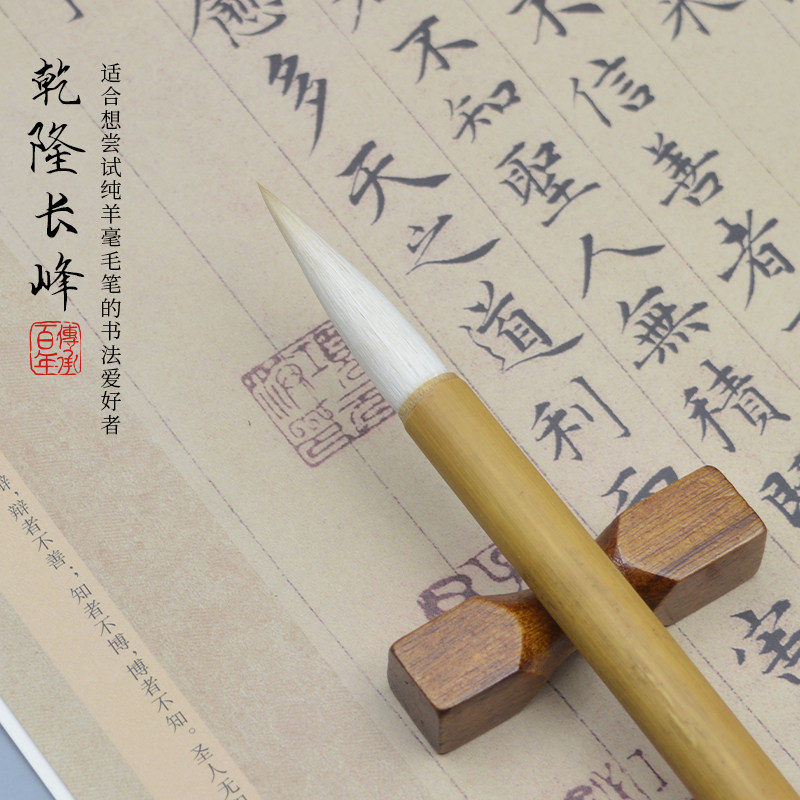 乾隆长峰
傳承
百年
适合想尝试纯羊毫毛笔的书法爱好者
信善者
不知聖人無積
愈多天之道利
害
辩者不善；知者不博，博者不知。圣人无